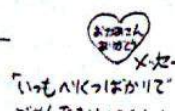 おかあさん
ありがとう
メッセー
「いつもへりくつばかりで